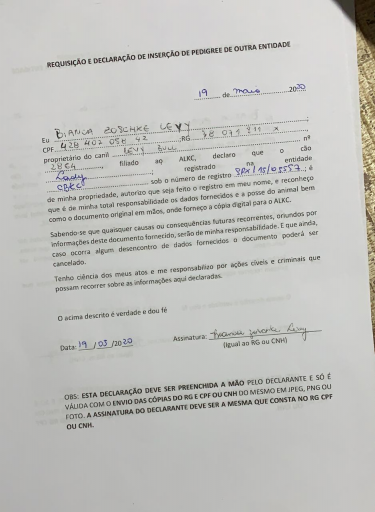 REQUISIÇÃO E DECLARAÇÃO DE INSERÇÃO DE PEDIGREE DE OUTRA ENTIDADE
19 de maio 2020
Eu BIANCA ZOSCHKE LEVY
CPF. 428 402 058 42 .RG 38 071 811 X
proprietário do canil LEVY BULL nº
2864 , filiado ao ALKC, declaro que o cão
Lady registrado na entidade
CBKC sob o número de registro SPX/15/03557 ; é
de minha propriedade, autorizo que seja feito o registro em meu nome, e reconheço
que é de minha total responsabilidade os dados fornecidos e a posse do animal bem
como o documento original em mãos, onde forneço a cópia digital para o ALKC.
Sabendo-se que quaisquer causas ou consequências futuras recorrentes, oriundos por
informações deste documento fornecido, serão de minha responsabilidade. E que ainda,
caso ocorra algum desencontro de dados fornecidos o documento poderá ser
cancelado.
Tenho ciência dos meus atos e me responsabilizo por ações cíveis e criminais que
possam recorrer sobre as informações aqui declaradas.
O acima descrito é verdade e dou fé
Data: 19 / 05 /2020 Assinatura: Bianca Zoschke Levy
(igual ao RG ou CNH)
OBS: ESTA DECLARAÇÃO DEVE SER PREENCHIDA A MÃO PELO DECLARANTE E SÓ É
VÁLIDA COM O ENVIO DAS CÓPIAS DO RG E CPF OU CNH DO MESMO EM JPEG, PNG OU
FOTO. A ASSINATURA DO DECLARANTE DEVE SER A MESMA QUE CONSTA NO RG CPF
OU CNH.